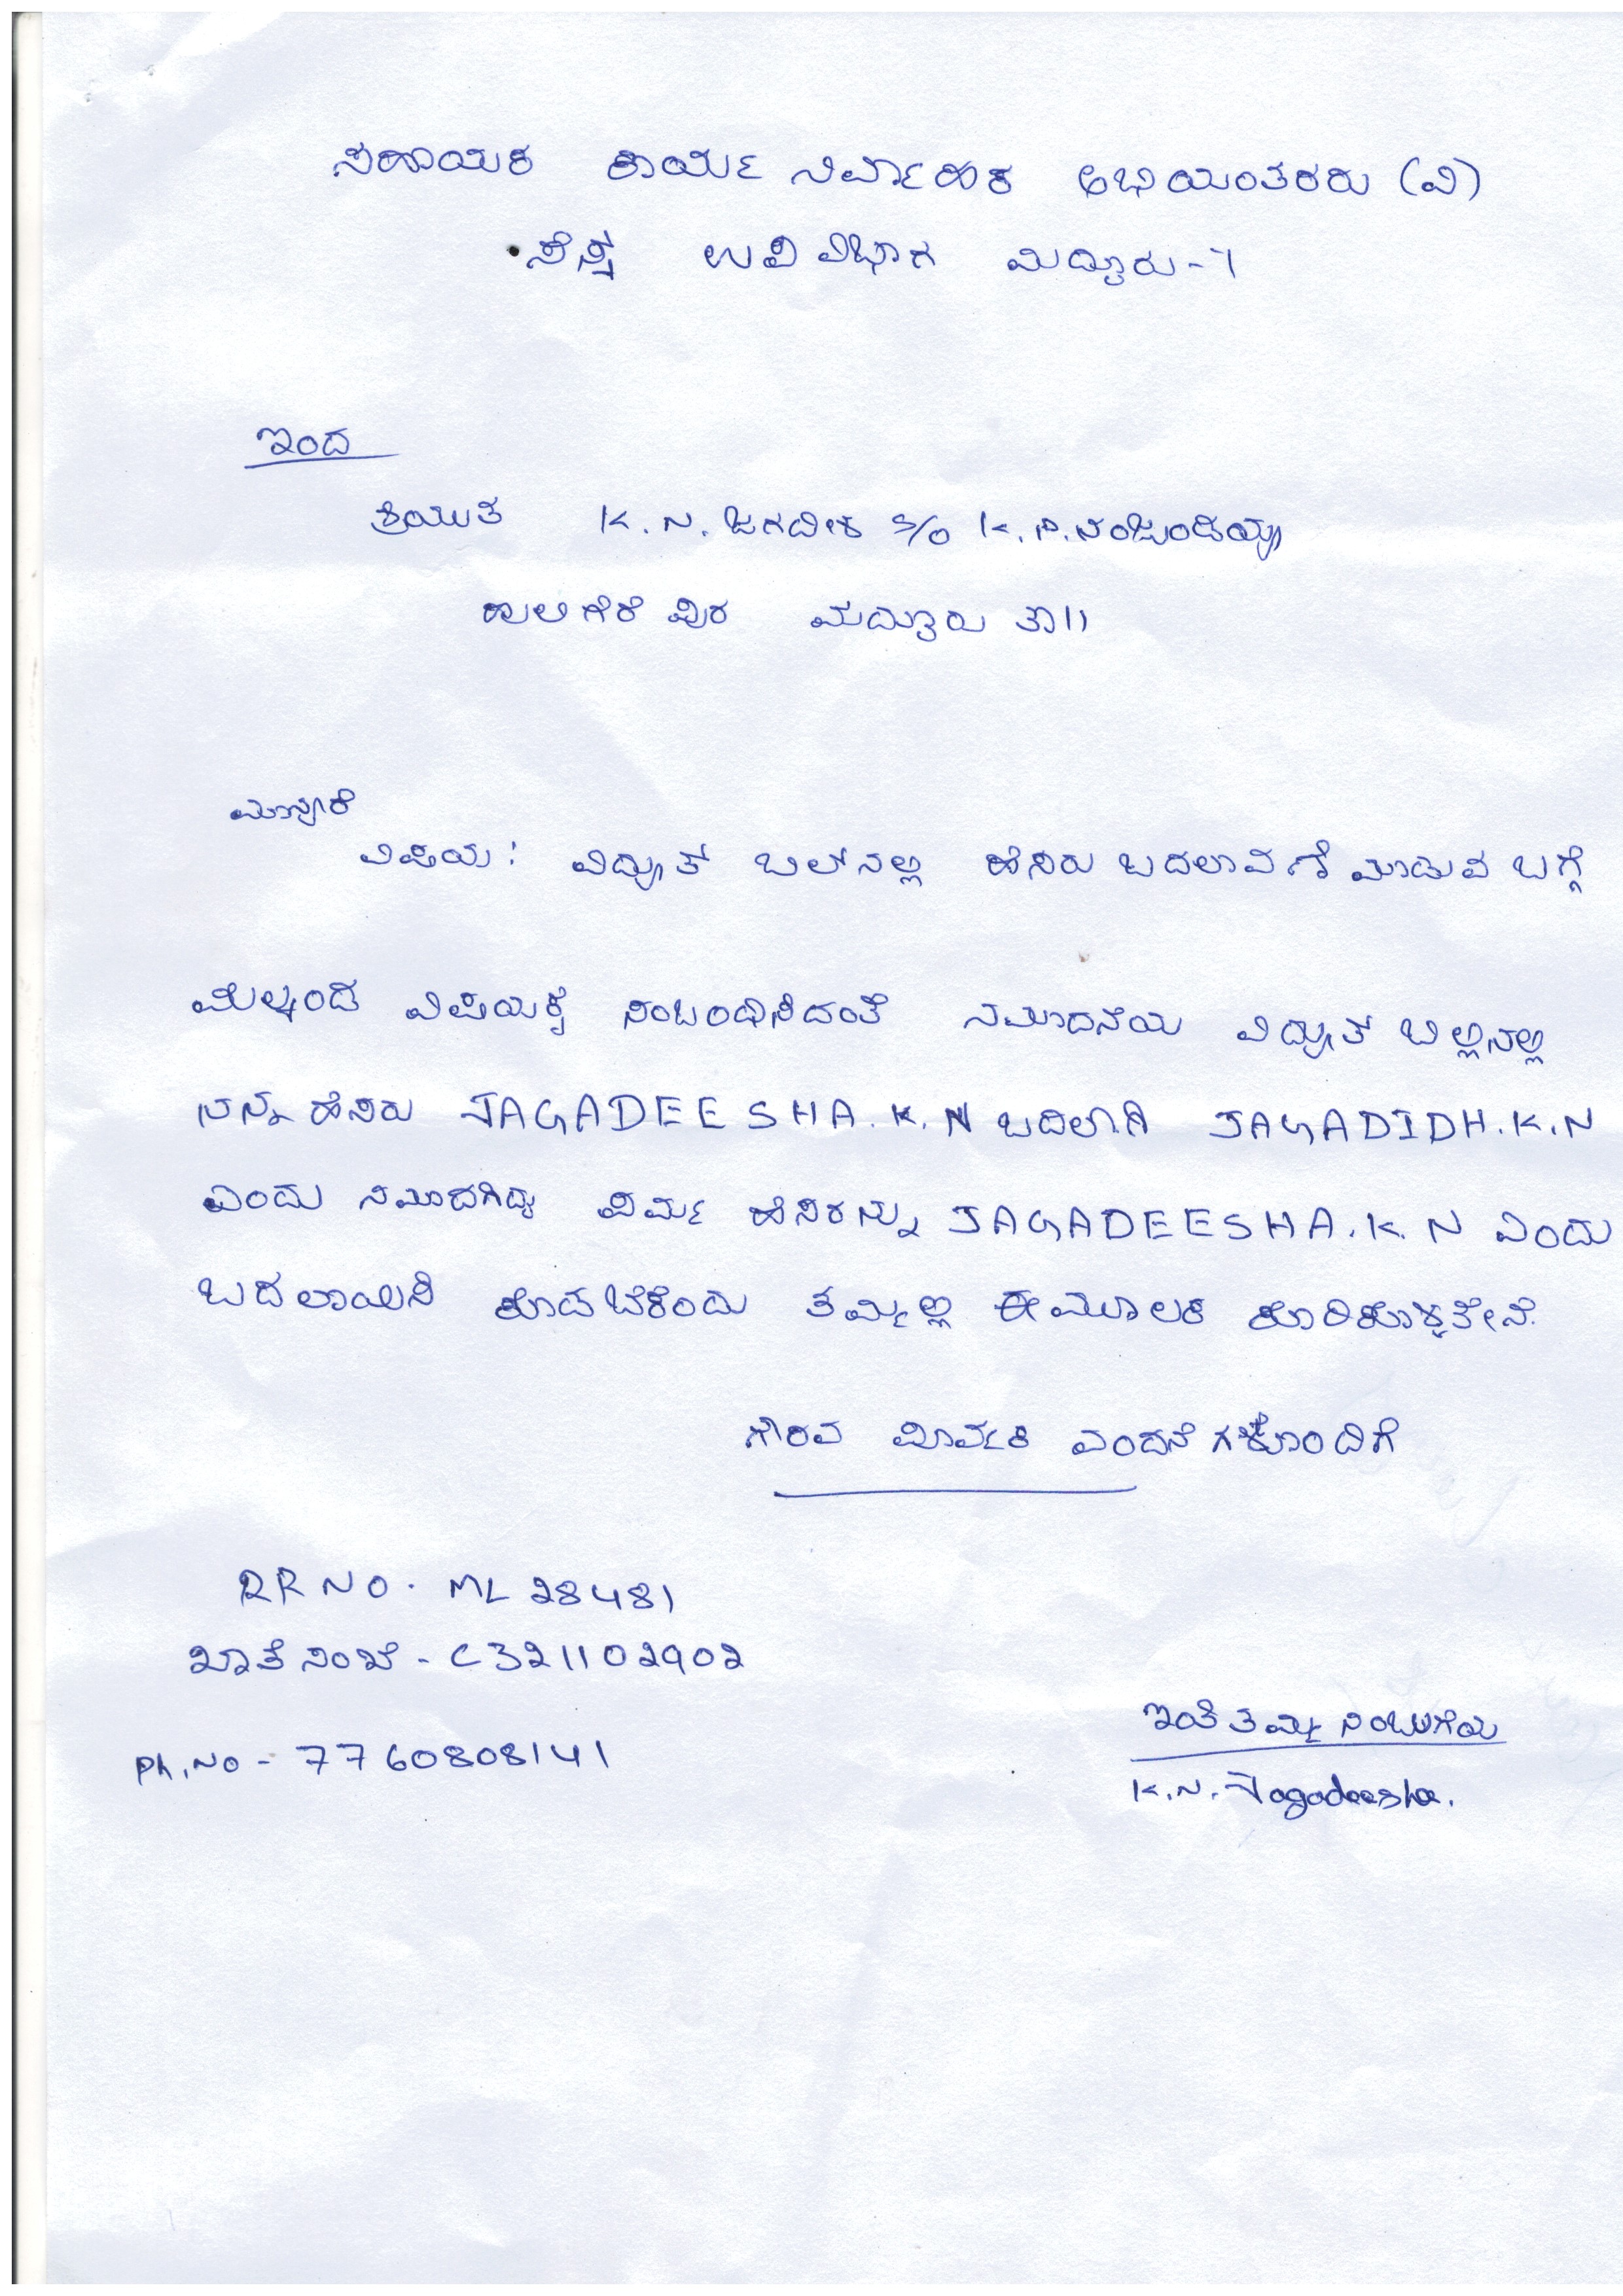 ಸಹಾಯಕ ಕಾರ್ಯ ನಿರ್ವಾಹಕ ಅಭಿಯಂತರರು (ವಿ)
ಸೆಸ್ಕ ಉಪ ವಿಭಾಗ ಮದ್ದೂರು-1
ಇಂದ
ಶ್ರಿಯುತ K.N.ಜಗದೀಶ S/o K.P.ನಂಜುಂಡಯ್ಯ
ಹುಲಿಗೆರೆ ಪುರ ಮದ್ದೂರು ತಾ||
ಮಾನ್ಯರೆ
ವಿಷಯ: ವಿದ್ಯುತ್ ಬಿಲ್‌ನಲ್ಲಿ ಹೆಸರು ಬದಲಾವಣೆ ಮಾಡುವ ಬಗ್ಗೆ
ಮೆಲ್ಕಂಡ ವಿಷಯಕ್ಕೆ ಸಂಬಂಧಿಸಿದಂತೆ ನಮ್ಮ ಮನೆಯ ವಿದ್ಯುತ್ ಬಿಲ್ಲಿನಲ್ಲಿ
ನನ್ನ ಹೆಸರು JAGADEESHA.K.N ಬದಲಾಗಿ JAGADIDH.K.N
ಎಂದು ನಮೂದಗಿದ್ದು ಹೆಸರನ್ನು JAGADEESHA.K.N ಎಂದು
ಬದಲಾಯಿಸಿ ಕೊಡಬೆಕೆಂದು ತಮ್ಮಲ್ಲಿ ಈ ಮೂಲಕ ಕೊರಿಕೊಳ್ಳತೇನೆ.
ಗೌರವ ಪೂರ್ವಕ ವಂದನೆಗಳೊಂದಿಗೆ
RR NO. ML 28481
ಖಾತೆ ಸಂಖೆ - C321102902
Ph.NO - 7760808141
ಇಂತಿ ತಮ್ಮ ನಂಬುಗೆಯ
K.N.Jagadeesha.